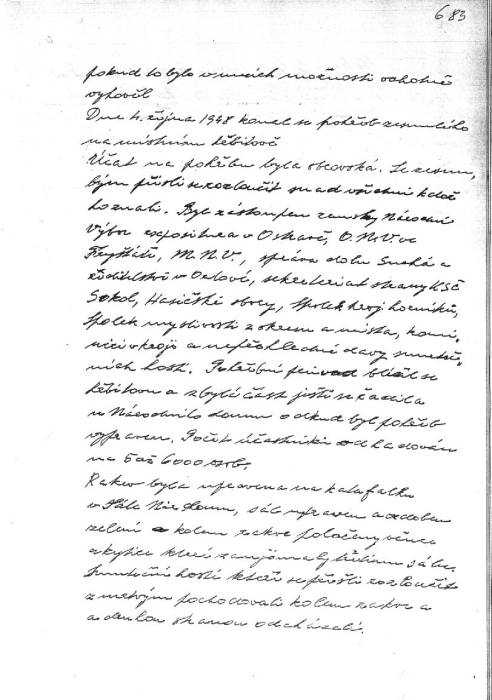 683
pokud to bylo v mezích možnosti ochotně
vyhověl
Dne 4. října 1948 konal se pohřeb zesnulého
na místním hřbitově
Účast na pohřbu byla obrovská. Se zesnu,
lým přišli se rozloučit snad všichni kdož
ho znali. Byl zástoupen zemsky Národní
Výbor expositura v Ostravě, O.N.V. ve
Fryštátě, M.N.V., správa dolu Suchá a
ředitelství v Orlové, sekretariat strany KSČ
Sokol, Hasičské sbory, Spolek horníků,
Spolek myslivosti z okresu a místa, komi,
níci v kroji a nepřehledné davy smuteč,
ních hostí. Pohřební průvod blížil se
hřbitovu a zbylá část ještě se řadila
u Národního domu odkud byl pohřeb
vypraven. Počet účastníků odhadován
na 5 až 6000 osob.
Rakev byla upravena na katafalku
v Sále Nár. domu, sál upraven a ozdoben
zelení a kolem rakve položeny věnce
a kytice které zaujímaly třetinu sálu.
Smuteční hosté kteří se přišli rozloučit
z mrtvým pochodovali kolem rakve a
a druhou stranou odcházeli.